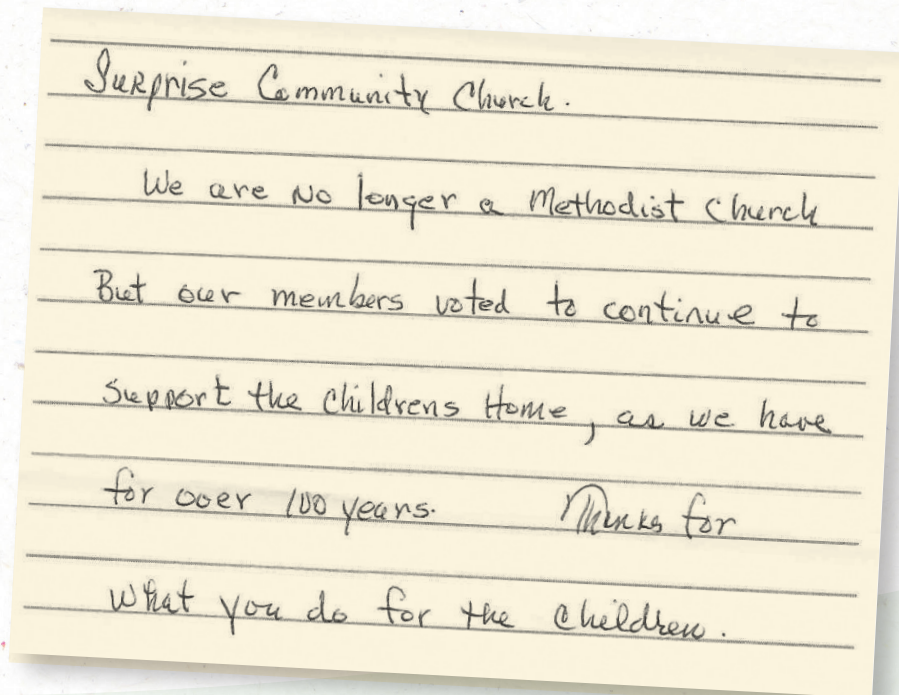 Surprise Community Church.
We are No longer a Methodist Church
But our members voted to continue to
Support the Childrens Home, as we have
for over 100 years. Thanks for
What you do for the Children.